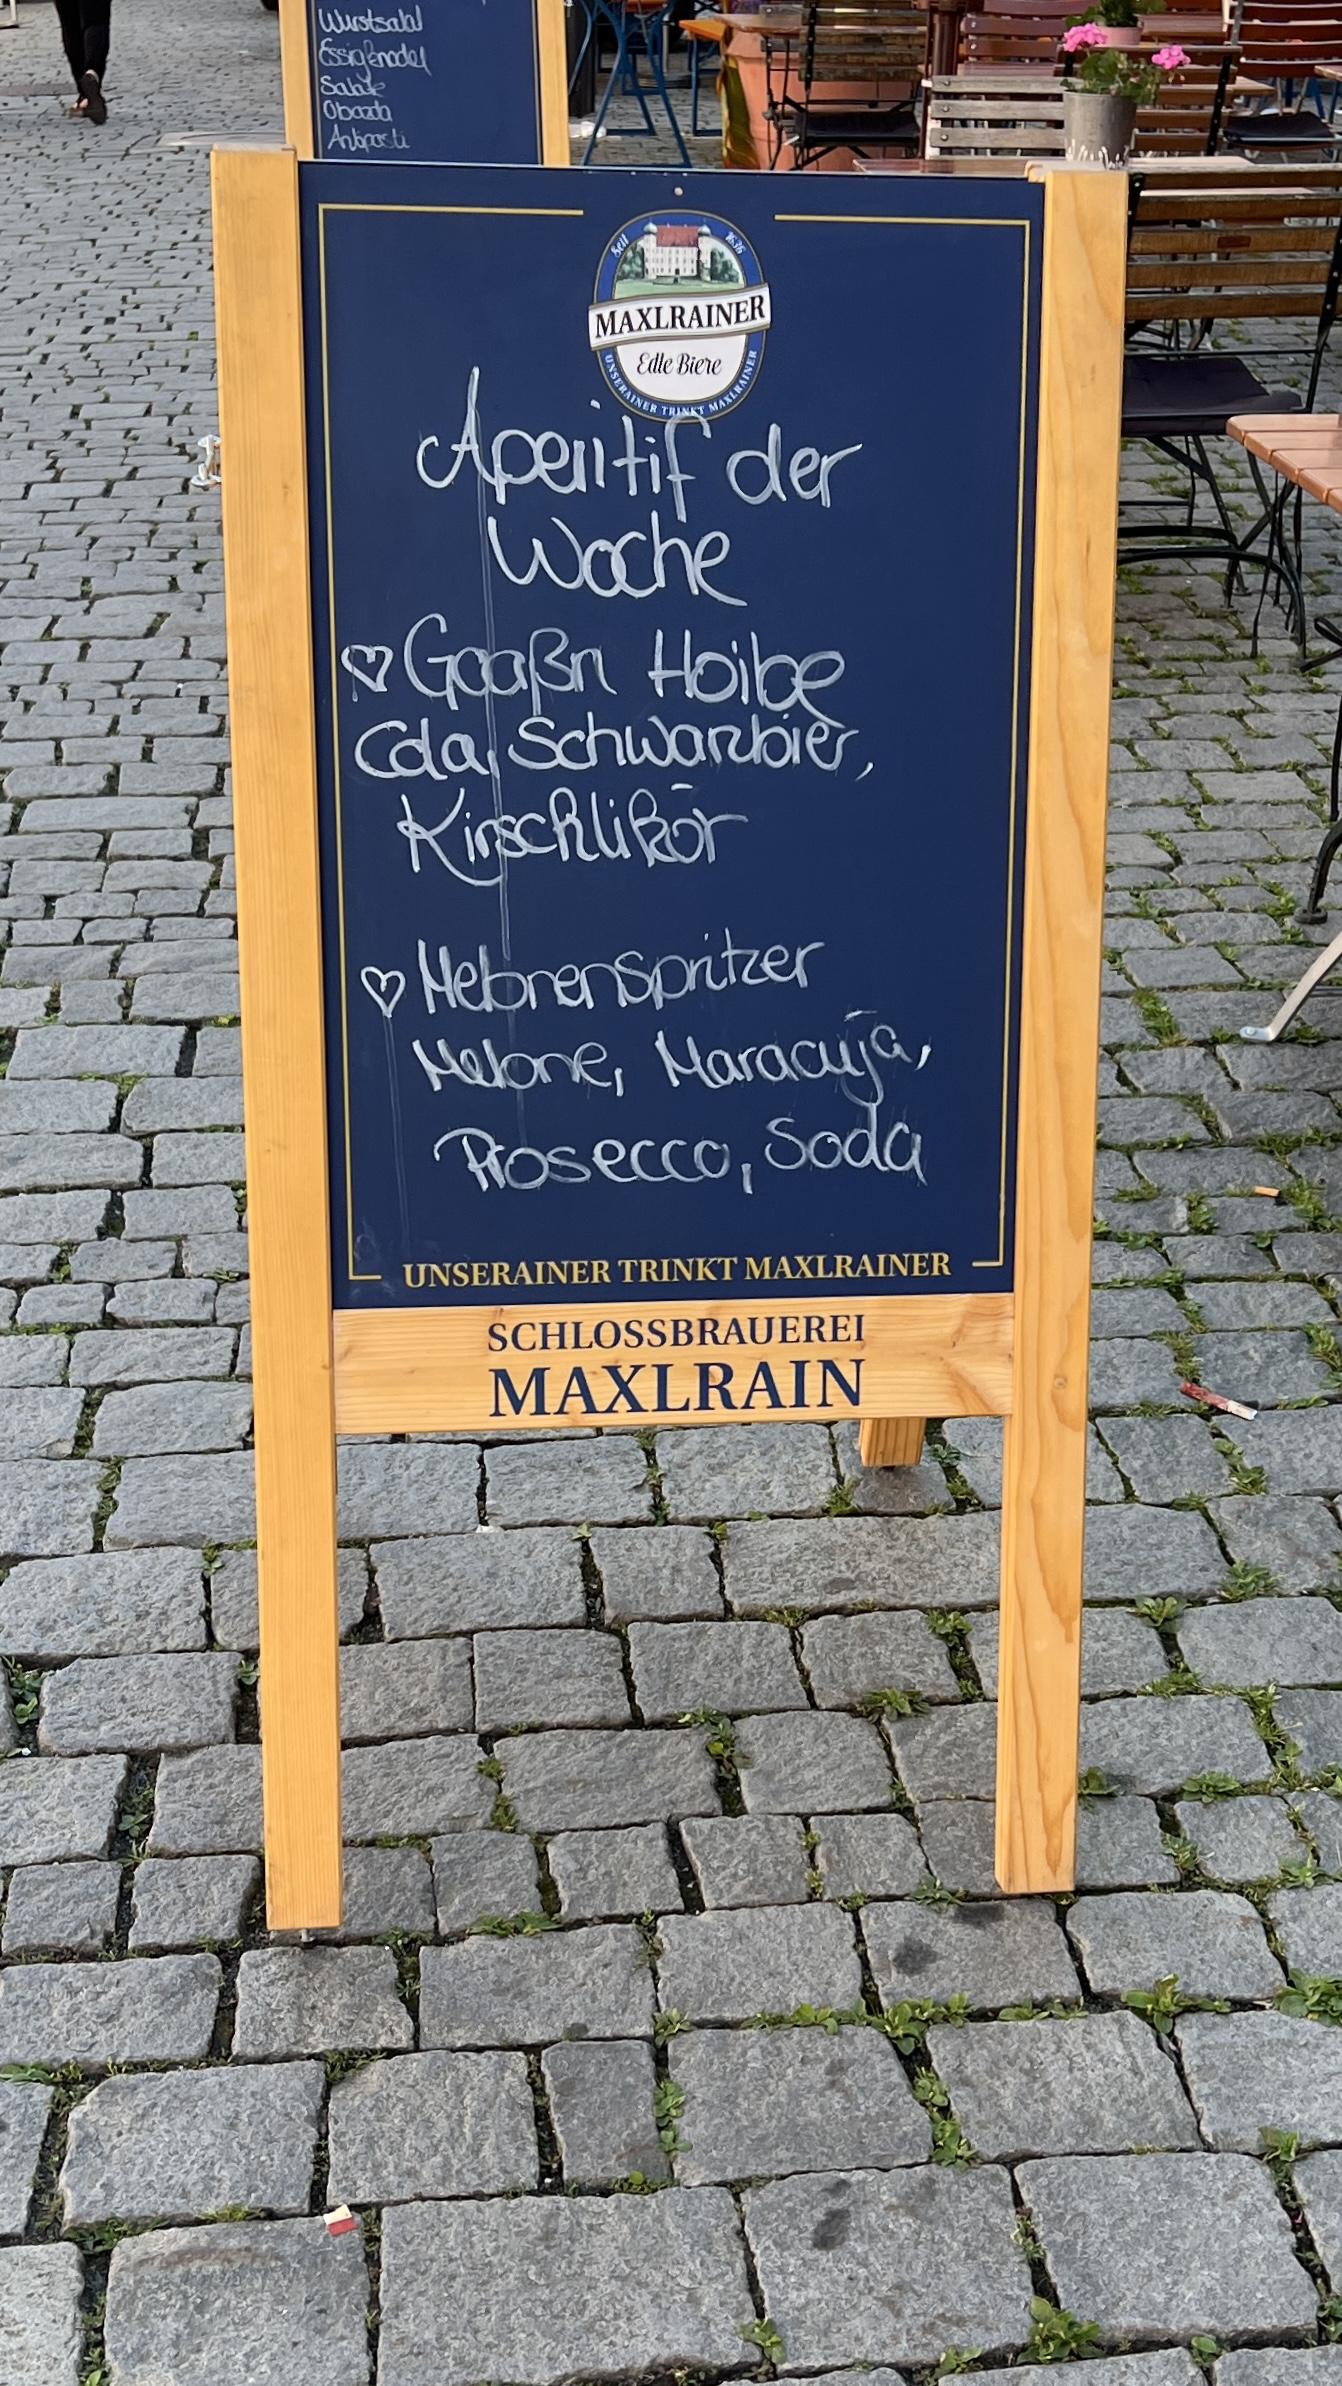 Wurstsalat
Essigknödel
Salate
Obazda
Antipasti
Seit 1636
MAXLRAINER
Edle Biere
UNSERAINER TRINKT MAXLRAINER
Aperitif der
Woche
♡ Gaaßn Hoibe
Cola, Schwarzbier,
Kirschlikör
♡ Melonenspritzer
Melone, Maracuja,
Prosecco, Soda
UNSERAINER TRINKT MAXLRAINER
SCHLOSSBRAUEREI
MAXLRAIN